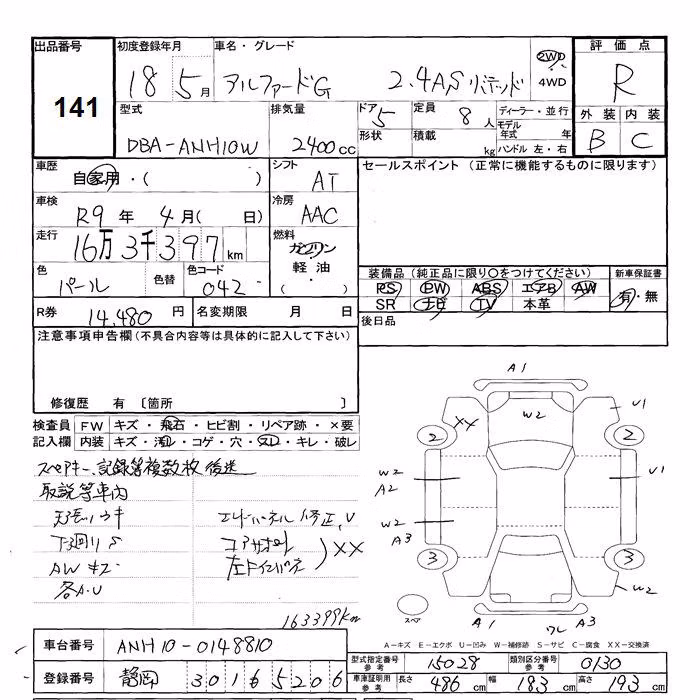 出品番号
141
初度登録年月
18 5月
車名・グレード
アルファードG 2.4AS リミテッド
2WD
4WD
評価点
R
外装 内装
B C
型式
DBA-ANH10W
排気量
2400cc
ドア
5
形状
定員
8人
積載
kg
ディーラー・並行
モデル年式 年
ハンドル 左・右
車歴
自家用・( )
シフト
AT
セールスポイント (正常に機能するものに限ります)
車検
R9年 4月( 日)
冷房
AAC
走行
16万3千397km
燃料
ガソリン
軽油
色
パール
色替
色コード
042
装備品 (純正品に限り○をつけてください)
新車保証書
PS PW ABS エアB AW
SR ナビ TV 本革
有・無
R券
14,480円
名変期限 月 日
後日品
注意事項申告欄(不具合内容等は具体的に記入して下さい)
修復歴 有 〔箇所 〕
検査員記入欄
FW キズ・飛石・ヒビ割・リペア跡・×要
内装 キズ・汚れ・コゲ・穴・スレ・キレ・破レ
スペアキー、記録簿複数枚後送
取説等車内
天張リウキ
下廻りS
AWキズ
各A.U
エンドパネル修正、U
コアサポート
XX
163399km
A1
XX
W2
U1
2
2
W2
A2
U1
W2
A3
3
3
W2
スペア
A1
ワレ
A3
A-キズ E-エクボ U-凹み W-補修跡 S-サビ C-腐食 XX-交換済
車台番号
ANH10-0148810
登録番号
静岡 301 65206
型式指定番号
参考
15028
類別区分番号
参考
0130
車庫証明用
参考
長さ 486cm 幅 183cm 高さ 193cm